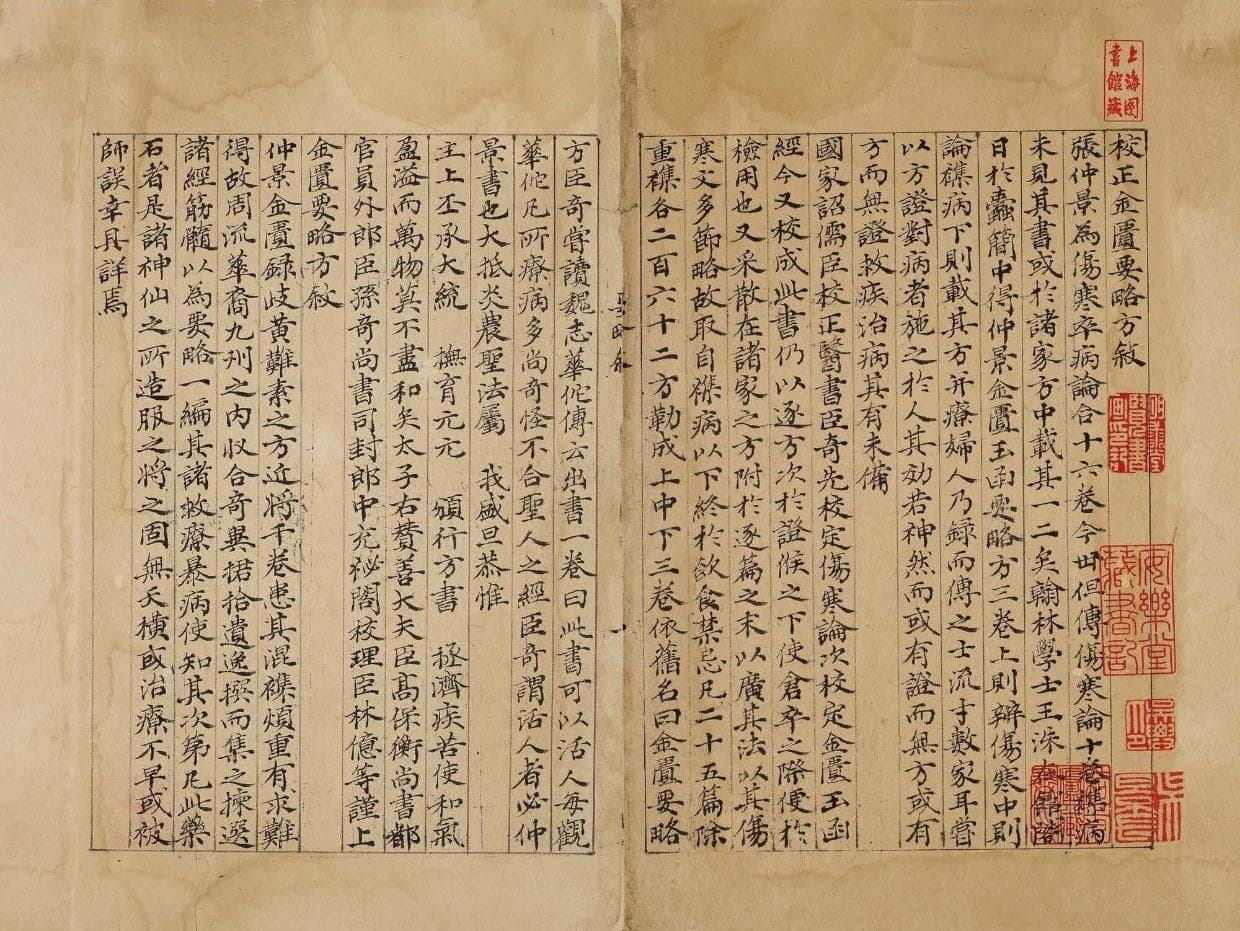 上海图書館藏
校正金匱要略方敘
張仲景為傷寒卒病論合十六卷今丗但傳傷寒論十卷襍病
未見其書或於諸家方中載其一二矣翰林學士王洙在館閣
日於蠹簡中得仲景金匱玉函要略方三卷上則辯傷寒中則
論襍病下則載其方并療婦人乃録而傳之士流才數家耳嘗
以方證對病者施之於人其効若神然而或有證而無方或有
方而無證救疾治病其有未備
國家詔儒臣校正醫書臣奇先校定傷寒論次校定金匱玉函
經今又校成此書仍以逐方次於證候之下使倉卒之際便於
檢用也又采散在諸家之方附於逐篇之末以廣其法以其傷
寒文多節略故取自襍病以下終於飲食禁忌凡二十五篇除
重襍各二百六十二方勒成上中下三卷依舊名曰金匱要略
安樂堂藏書記
方臣奇嘗讀魏志華佗傳云出書一卷曰此書可以活人每觀
華佗凡所療病多尚奇怪不合聖人之經臣奇謂活人者必仲
景書也大抵炎農聖法屬 我盛旦恭惟
主上丕承大統 撫育元元 頒行方書 拯濟疾苦使和氣
盈溢而萬物莫不盡和矣太子右贊善大夫臣高保衡尚書都
官員外郎臣孫奇尚書司封郎中充祕閣校理臣林億等謹上
金匱要略方敘
仲景金匱録岐黃難素之方近將千卷患其混襍煩重有求難
得故周流華裔九州之内収合奇異捃拾遺逸撰而集之揀選
諸經筋髓以為要略一編其諸救療暴病使知其次第凡此藥
石者是諸神仙之所造服之將之固無夭橫或治療不早或被
師誤幸具詳焉